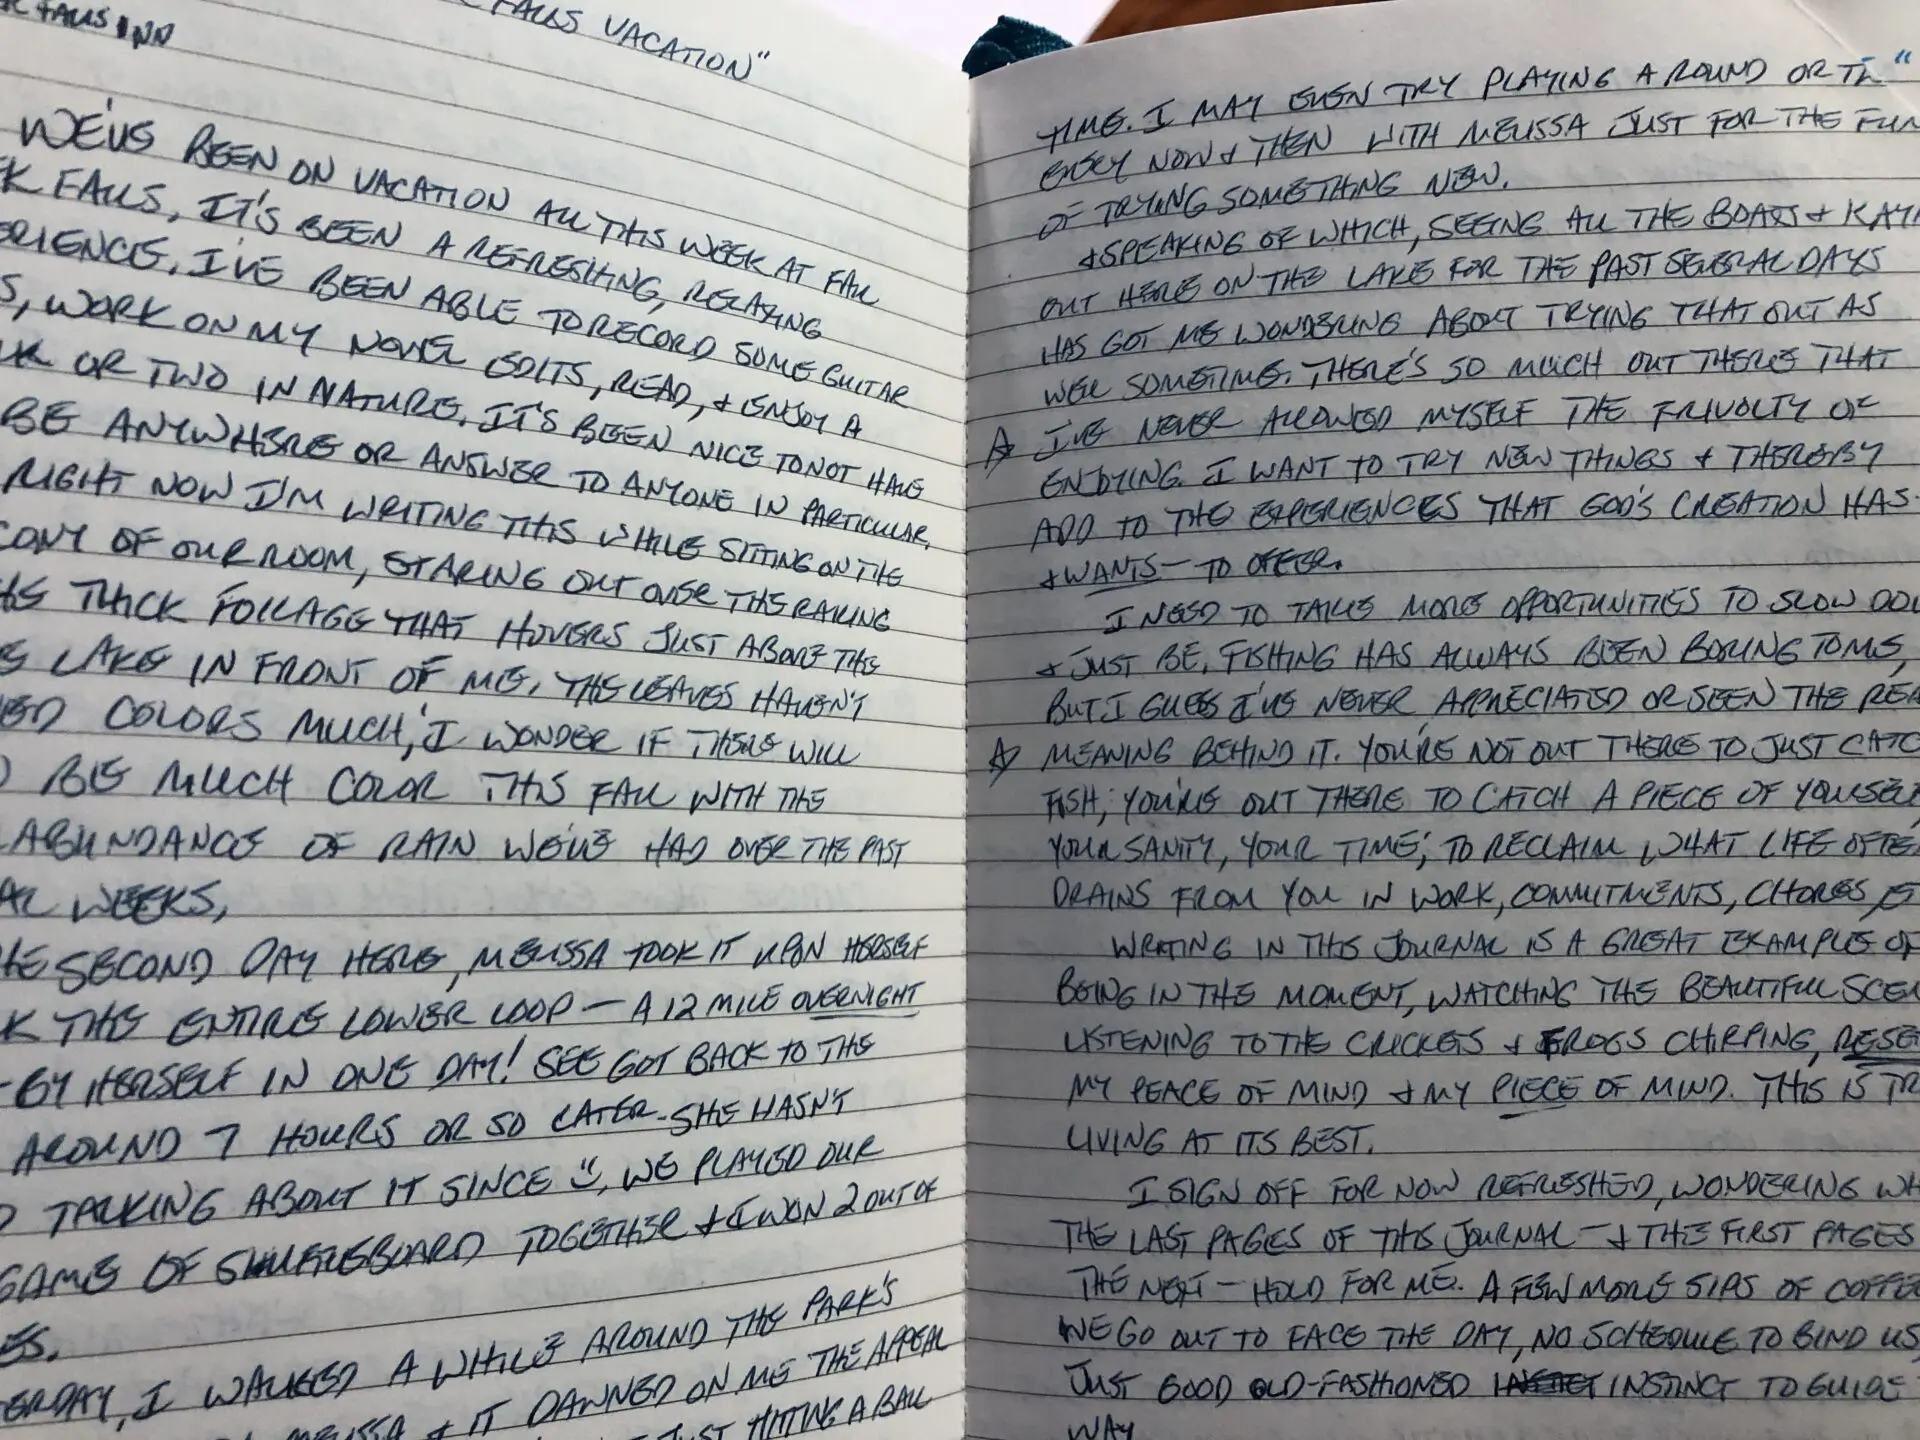 FALLS INN
FALLS VACATION"
WE'VE BEEN ON VACATION ALL THIS WEEK AT FALL
K FALLS, IT'S BEEN A REFRESHING, RELAXING
ERIENCE. I'VE BEEN ABLE TO RECORD SOME GUITAR
S, WORK ON MY NOVEL EDITS, READ, & ENJOY A
LK OR TWO IN NATURE. IT'S BEEN NICE TO NOT HAVE
BE ANYWHERE OR ANSWER TO ANYONE IN PARTICULAR,
RIGHT NOW I'M WRITING THIS WHILE SITTING ON THE
CONY OF OUR ROOM, STARING OUT OVER THE RAILING
HE THICK FOILAGE THAT HOVERS JUST ABOVE THE
E LAKE IN FRONT OF ME. THE LEAVES HAVEN'T
ED COLORS MUCH, I WONDER IF THERE WILL
BE MUCH COLOR THIS FALL WITH THE
ABUNDANCE OF RAIN WE'VE HAD OVER THE PAST
AL WEEKS,
HE SECOND DAY HERE, MELISSA TOOK IT UPON HERSELF
K THE ENTIRE LOWER LOOP — A 12 MILE OVERNIGHT
- BY HERSELF IN ONE DAY! SEE GOT BACK TO THE
AROUND 7 HOURS OR SO LATER - SHE HASN'T
D TALKING ABOUT IT SINCE :), WE PLAYED OUR
GAME OF SHUFFLEBOARD TOGETHER & I WON 2 OUT OF
ES.
ERDAY, I WALKED A WHILE AROUND THE PARK'S
MELISSA & IT DAWNED ON ME THE APPEAL
JUST HITTING A BALL
TIME. I MAY EVEN TRY PLAYING A ROUND OR TW"
EVERY NOW & THEN WITH MELISSA JUST FOR THE FUN
OF TRYING SOMETHING NEW.
& SPEAKING OF WHICH, SEEING ALL THE BOATS & KAYA
OUT HERE ON THE LAKE FOR THE PAST SEVERAL DAYS
HAS GOT ME WONDERING ABOUT TRYING THAT OUT AS
WELL SOMETIME. THERE'S SO MUCH OUT THERE THAT
☆ I'VE NEVER ALLOWED MYSELF THE FRIVOLTY OF
ENJOYING. I WANT TO TRY NEW THINGS & THEREBY
ADD TO THE EXPERIENCES THAT GOD'S CREATION HAS -
& WANTS — TO OFFER.
I NEED TO TAKE MORE OPPORTUNITIES TO SLOW DOW
& JUST BE. FISHING HAS ALWAYS BEEN BORING TO ME,
BUT I GUESS I'VE NEVER APPRECIATED OR SEEN THE REA
☆ MEANING BEHIND IT. YOU'RE NOT OUT THERE TO JUST CATC
FISH; YOU'RE OUT THERE TO CATCH A PIECE OF YOURSELF,
YOUR SANITY, YOUR TIME; TO RECLAIM WHAT LIFE OFTEN
DRAINS FROM YOU IN WORK, COMMITMENTS, CHORES, ET
WRITING IN THIS JOURNAL IS A GREAT EXAMPLE OF
BEING IN THE MOMENT, WATCHING THE BEAUTIFUL SCEN
LISTENING TO THE CRICKETS & FROGS CHIRPING, RESET
MY PEACE OF MIND & MY PIECE OF MIND. THIS IS TR
LIVING AT ITS BEST.
I SIGN OFF FOR NOW REFRESHED, WONDERING WH
THE LAST PAGES OF THIS JOURNAL — & THE FIRST PAGES
THE NEXT — HOLD FOR ME. A FEW MORE SIPS OF COFFEE
WE GO OUT TO FACE THE DAY, NO SCHEDULE TO BIND US,
JUST GOOD OLD-FASHIONED INSTINCT TO GUIDE
WAY